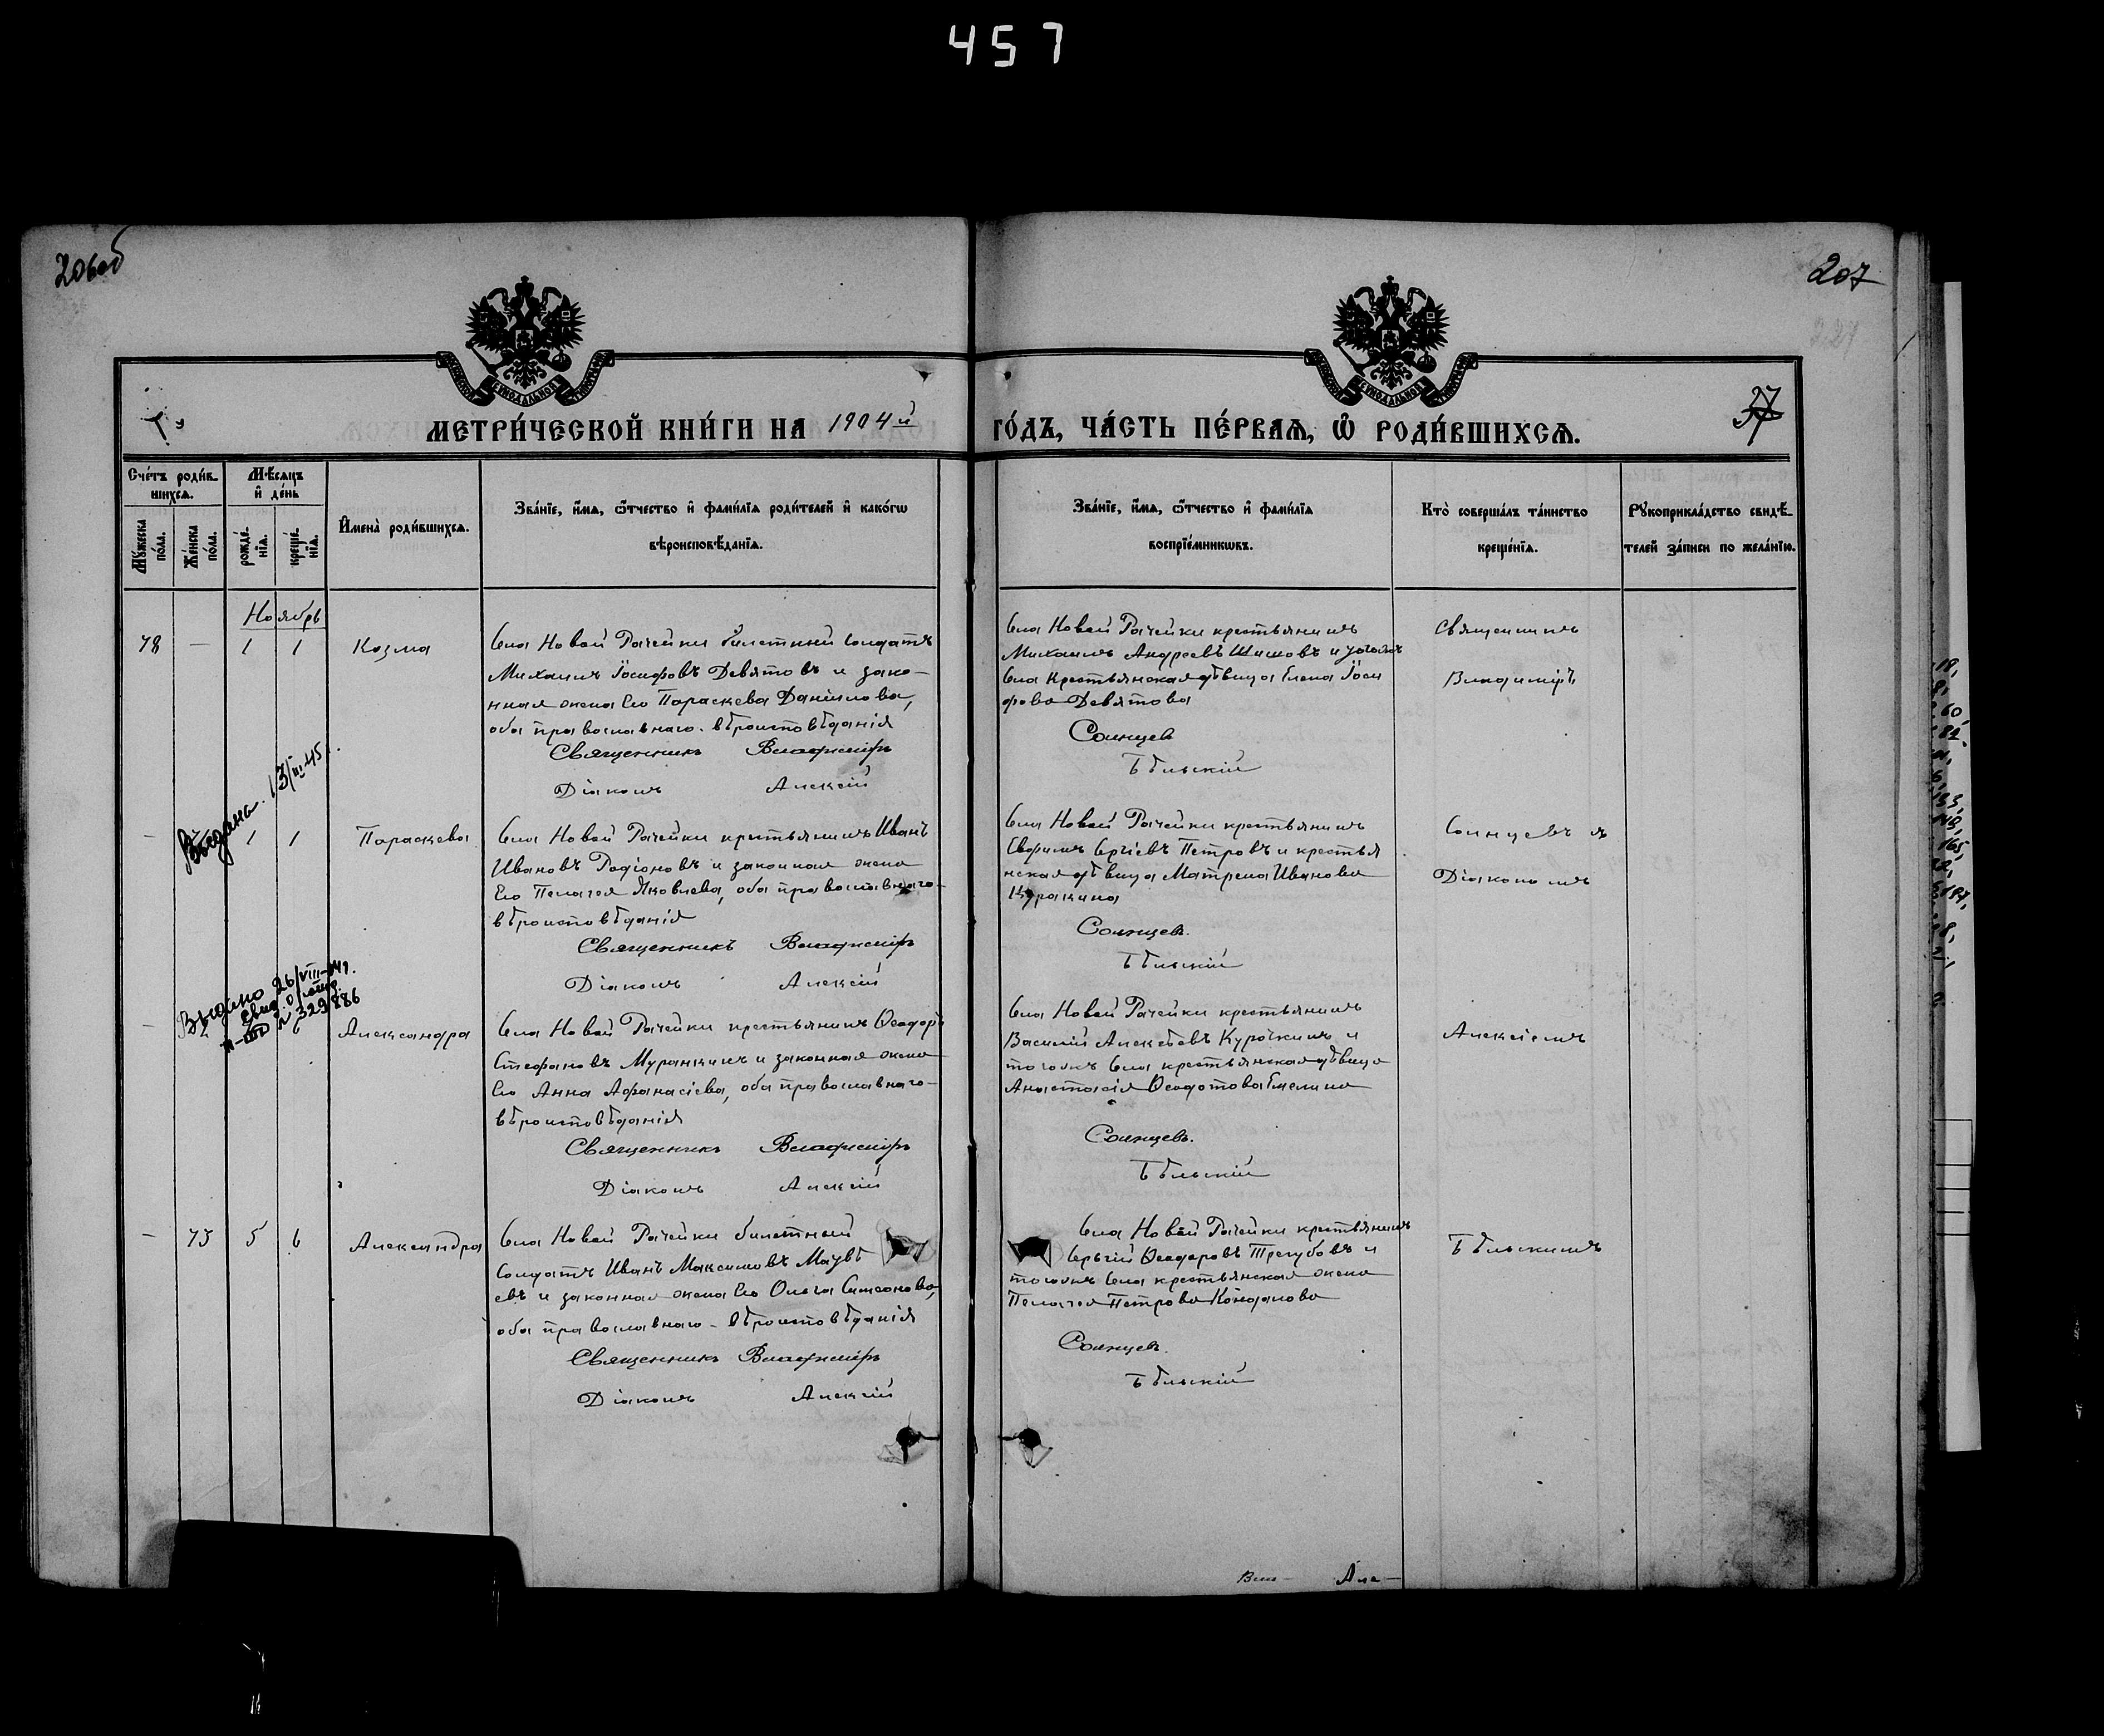 457
206об
207
227
37
МЕТРИ́ЧЕСКОЙ КНИ́ГИ НА 1904й ГО́ДЪ, ЧА́СТЬ ПЕ́РВАѦ, Ѽ РОДИ́ВШИХСѦ.
Сче́тъ роди́в-
шихсѧ.
Мѣ́сѧцъ
и҆ де́нь
Мꙋ́жеска
по́ла.
Же́нска
по́ла.
рожде́-
нїѧ.
креще́-
нїѧ.
И҆мена̀ роди́вшихсѧ.
Зва́нїе, и҆́мѧ, ѻ҆́тчество и҆ фами́лїѧ роди́телей и҆ како́гѡ
вѣроисповѣ́данїѧ.
Зва́нїе, и҆́мѧ, ѻ҆́тчество и҆ фами́лїѧ
воспрїе́мникѡвъ.
Кто̀ соверша́лъ та́инство
креще́нїѧ.
Рꙋкоприкла́дство свидѣ́-
телей за́писи по жела́нїю.
Ноябрь
78 — 1 1 Козма
Села Новой Рачейки билетный солдатъ
Михаилъ Іосифовъ Девятовъ и зако-
нная жена его Параскева Данилова,
оба православнаго вѣроисповѣданія
Священникъ Владиміръ
Діаконъ Алексій
Села Новой Рачейки крестьянинъ
Михаилъ Андреевъ Шишовъ и
села крестьянская дѣвица Елена Іоси
фова Девятова
Солнцев
Бѣльскій
Священникъ
Владиміръ
Выдана 13/
— 1 1 Параскева
Села Новой Рачейки крестьянинъ Иванъ
Ивановъ Родіоновъ и законная жена
его Пелагея Яковлева, оба православнаго
вѣроисповѣданія
Священникъ Владиміръ
Діаконъ Алексій
Села Новой Рачейки крестьянинъ
Ефримъ Сергіевъ Петровъ и крестья
нская дѣвица Матрена Иванова
Куракина
Солнцев.
Бѣльскій
Солнцевъ съ
Діакономъ
Выдано 26/VIII-
№ 329886
— 6 Александра
Села Новой Рачейки крестьянинъ Ѳеодоръ
Стефановъ Муранкинъ и законная жена
его Анна Афанасіева, оба православнаго
вѣроисповѣданія
Священникъ Владиміръ
Діаконъ Алексій
Села Новой Рачейки крестьянинъ
Василій Алексѣевъ Курочкинъ и
тогожъ села крестьянская дѣвица
Анастасія Ѳеодотова Емелина
Солнцевъ.
Бѣльскій
Алексіемъ
— 73 5 6 Александра
Села Новой Рачейки билетный
солдатъ Иванъ Максимовъ
евъ и законная жена его Ольга Симеонова,
оба православнаго вѣроисповѣданія
Священникъ Владиміръ
Діаконъ Алексій
Села Новой Рачейки крестьянинъ
Сергій Ѳеодоровъ Трегубовъ и
тогожъ села крестьянская жена
Пелагея Петрова
Солнцев.
Бѣльскій
Бѣльскимъ
Вла— Але—